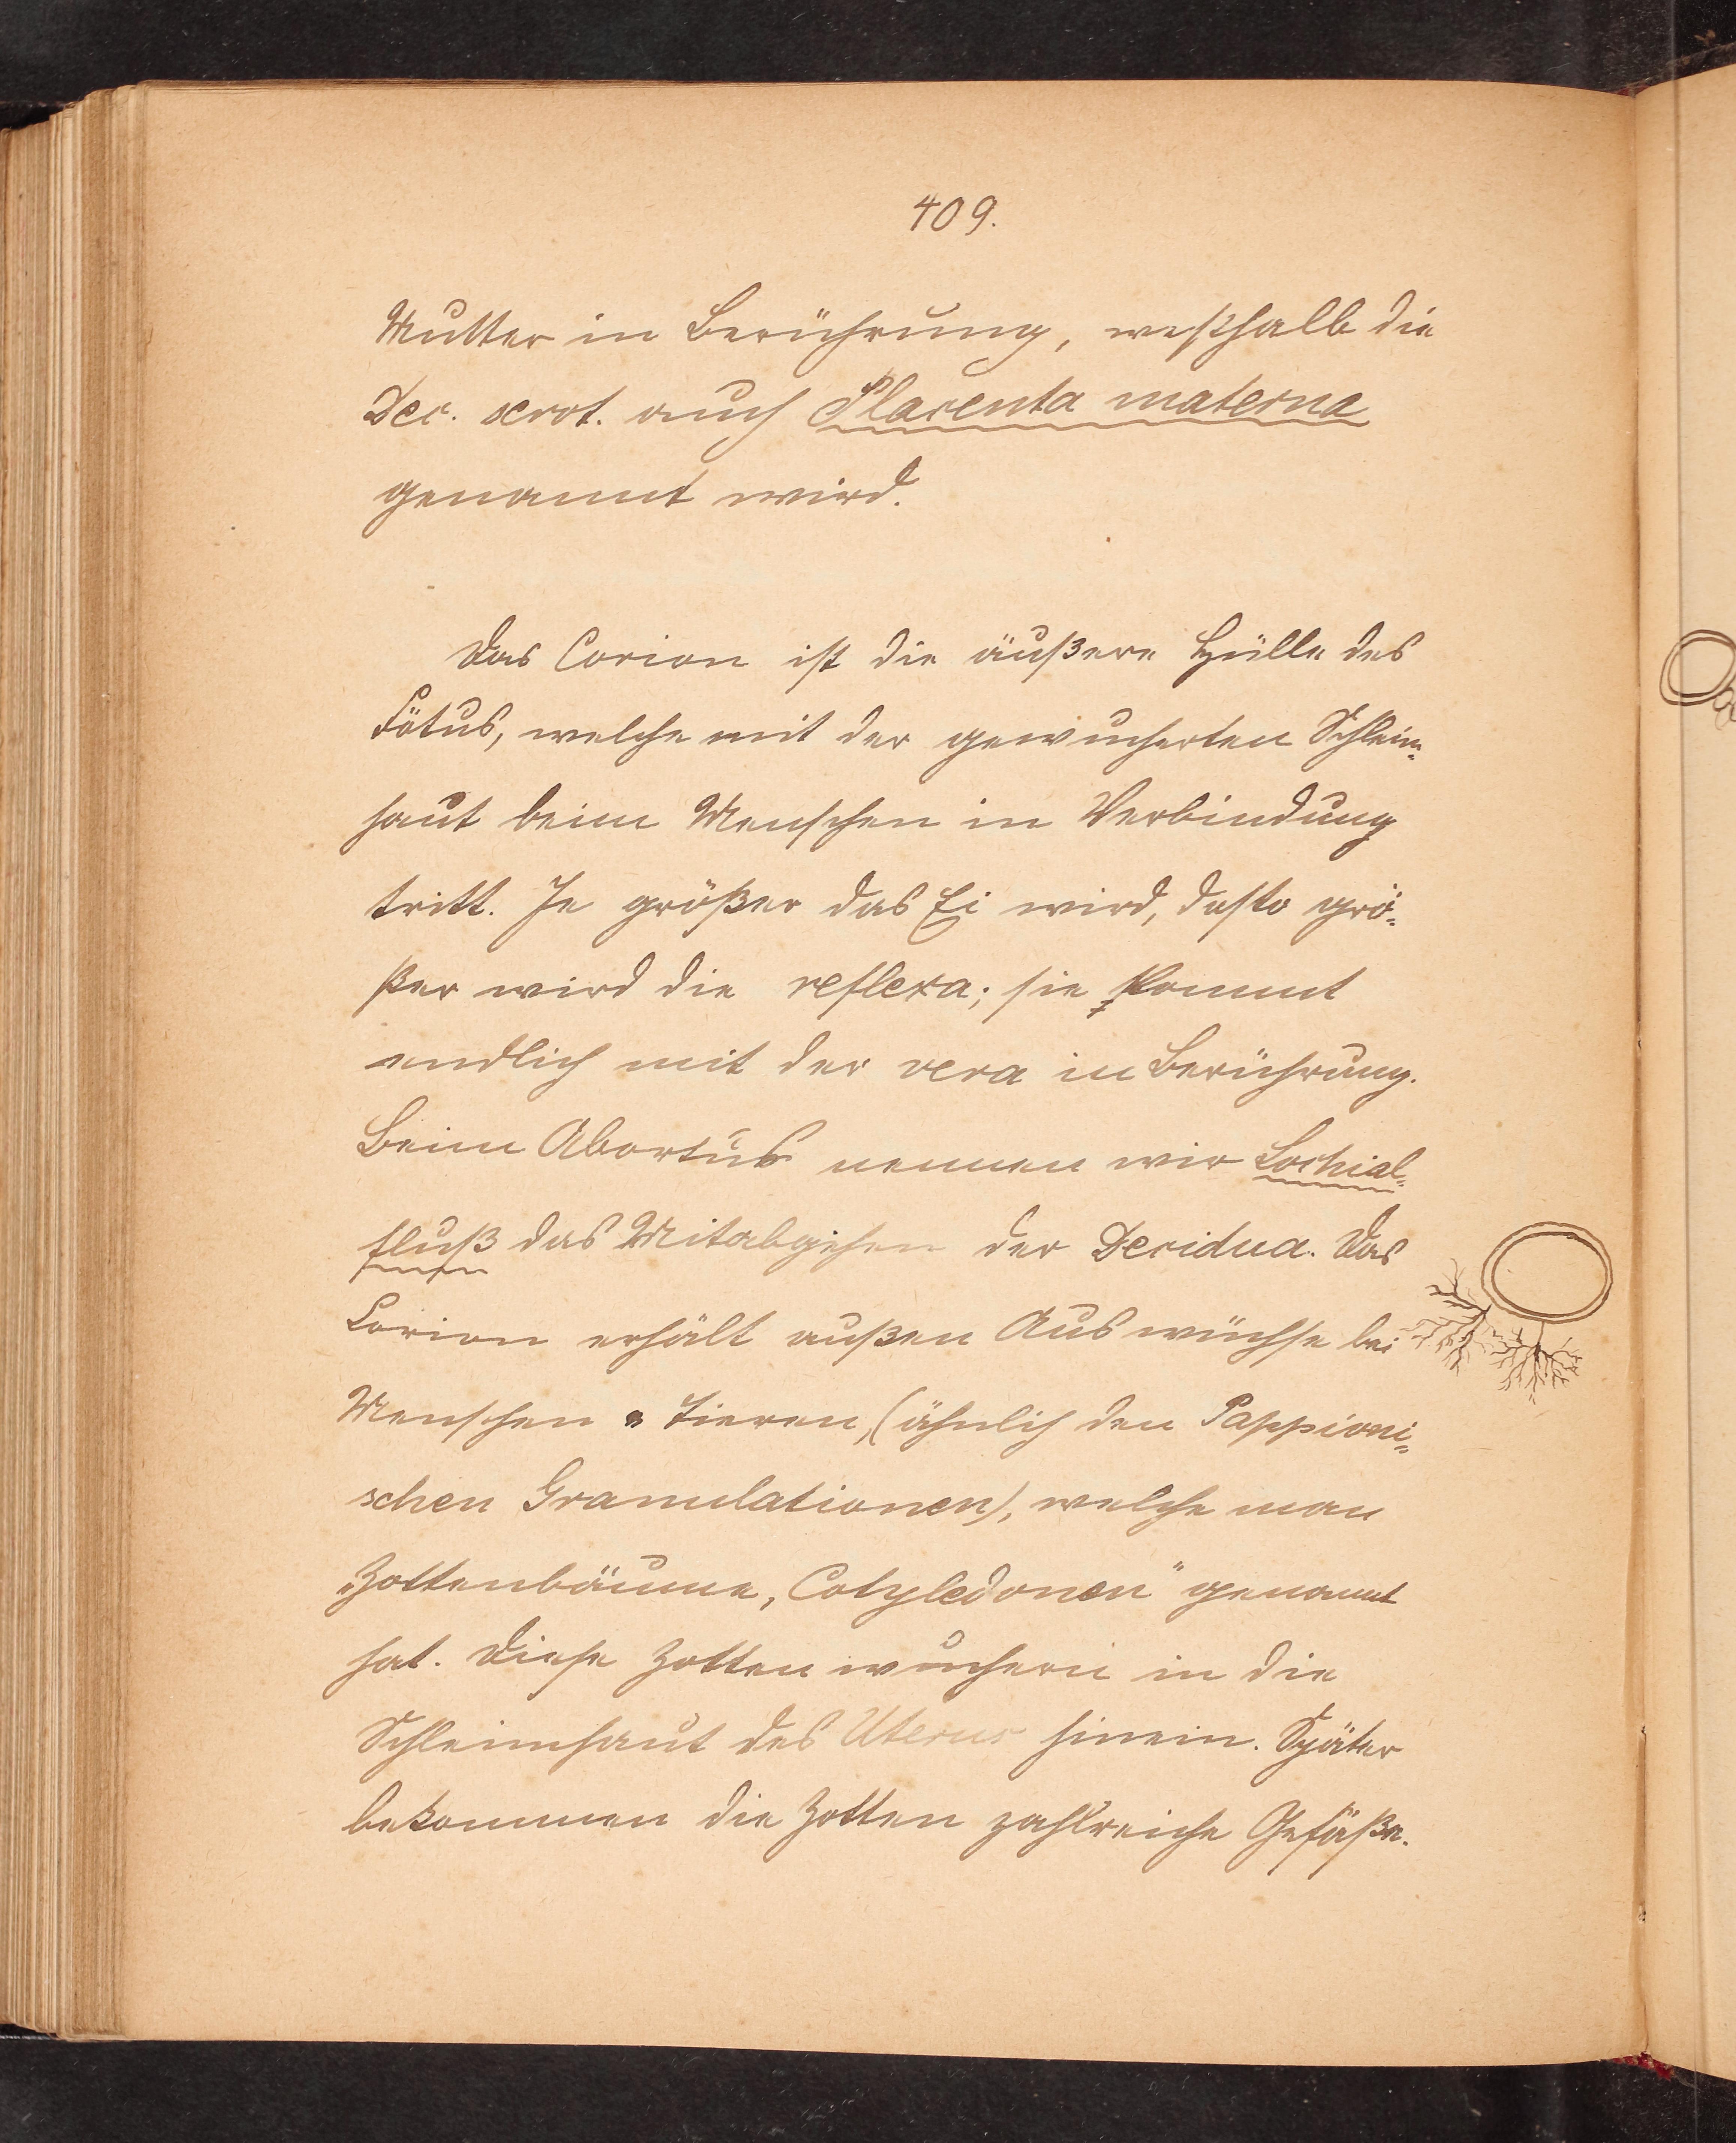 409.
Mutter in Berührung, weßhalb die
Dec. serot. auch Placenta materna
genannt wird.
Das Corion ist die äußere Hülle des
Fötus, welche mit der gewucherten Schleim-
haut beim Menschen in Verbindung
tritt. Je größer das Ei wird, desto grö-
ßer wird die reflexa; sie kommt
endlich mit der vera in Berührung.
Beim Abortus nennen wir Lochial-
fluß das Mitabgehen der Decidua. Das
Corion erhält außen Auswüchse bei
Menschen u Tieren, (ähnlich den Pappioni-
schen Granulationen), welche man
„Zottenbäume, Cotyledonen" genannt
hat. Diese Zotten wuchern in die
Schleimhaut des Uterus hinein. Später
bekommen die Zotten zahlreiche Gefäße.